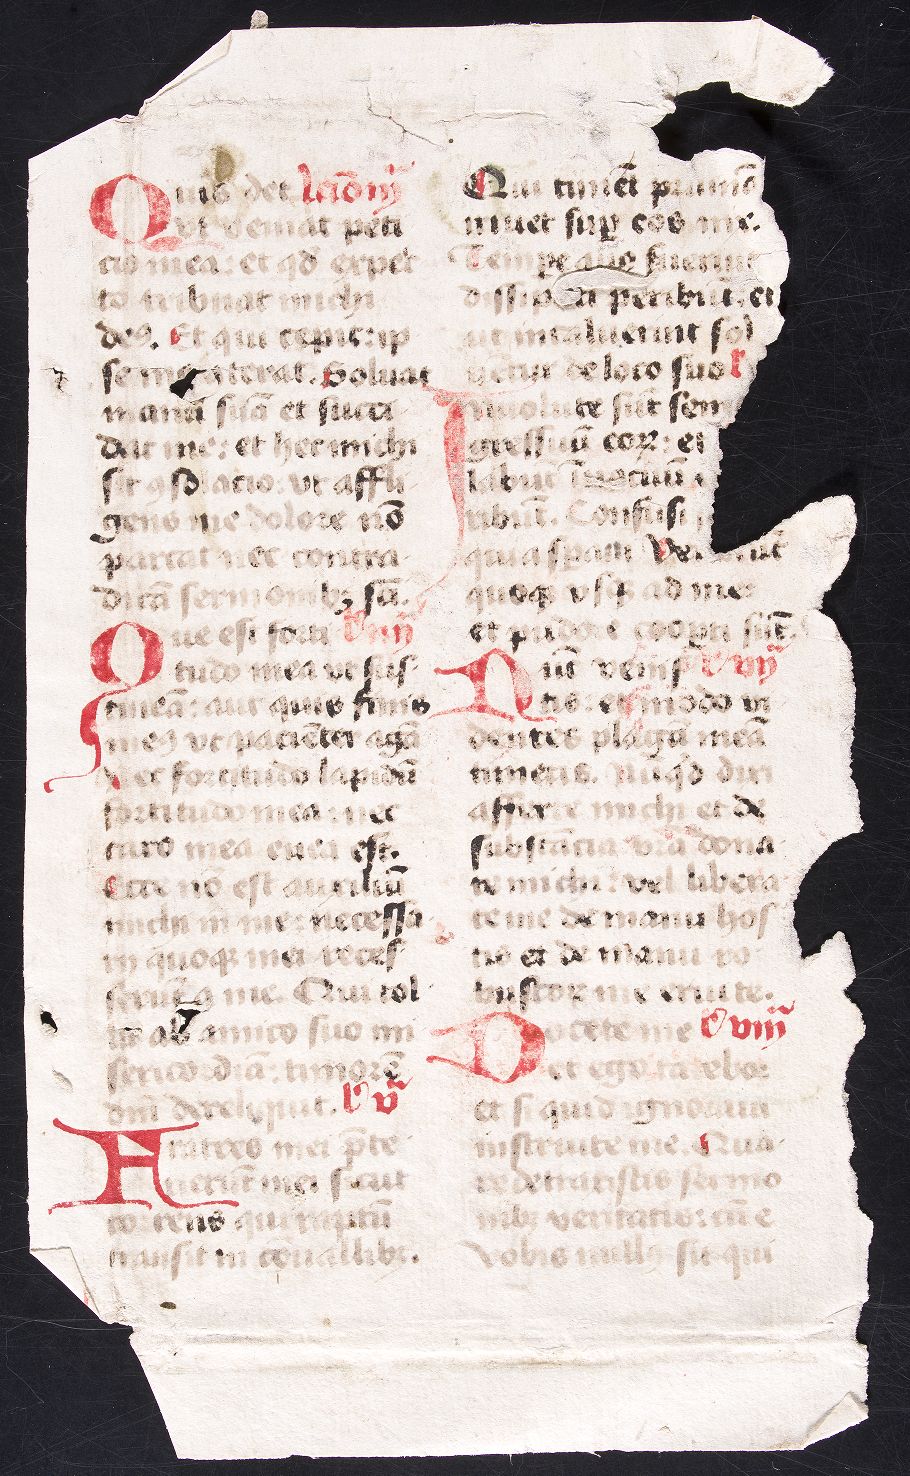 Quis det
vt veniat peti
cio mea: et qd̄ expec
to tribuat michi
deꝰ. Et qui cepit: ip
se me ꝯterat. Soluat
manū suā et succi
dat me: et hec michi
sit ꝯsolatio: vt affli
gens me dolore nō
parcat nec contra
dicā sermonibꝫ sc̄i.
Que est forti
tudo mea vt sus
tineā: aut quis finis
meꝰ vt paciēter agā
Nec fortitudo lapidū
fortitudo mea: nec
caro mea enea est.
Ecce nō est auxiliū
michi in me: necessa
rij quoqꝫ mei reces
serūt a me. Qui tol
lit ab amico suo mi
sericordiā: timorē
dn̄i derelīquit. v
Fratres mei p̄te
rierūt me: sicut
torrens qui raptū
transit in cōuallibꝫ.
Qui timēt pruinā
irruet suꝑ eos nix.
Tempe quo fuerint
dissipati peribūt: et
ut incaluerint sol
uētur de loco suo
Inuolute sūt sem
gressuū eoꝝ:
labūt in vacuū
ribūt. Confusi
quia spaui Venerūt
quoqꝫ vsqꝫ ad me:
et pudore coopti sūt.
Nūc venis vij
tis: et modo vi
dentes plagā meā
timetis. Nūqd dixi
afferte michi et de
substācia vrā dona
te michi: vel libera
te me de manu hos
tis et de manu ro
bustoꝝ me eruite.
Docete me viij
et ego tacebo:
et si quid ignoraui
instruite me. Qua
re detraxistis sermo
nibꝫ veritatis: cū e
vobis nullꝰ sit qui